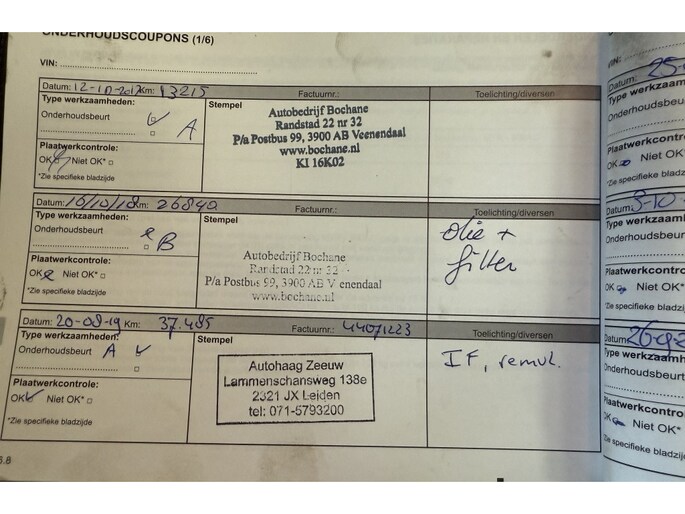 ONDERHOUDSCOUPONS (1/6)
VIN:
Datum: 12-10-2017 Km: 13215 Factuurnr.: Toelichting/diversen
Type werkzaamheden: Stempel
Onderhoudsbeurt A
Autobedrijf Bochane
Randstad 22 nr 32
P/a Postbus 99, 3900 AB Veenendaal
www.bochane.nl
KI 16K02
Plaatwerkcontrole:
OK Niet OK*
*Zie specifieke bladzijde
Datum: 16/10/18 Km: 26840 Factuurnr.: Toelichting/diversen
Type werkzaamheden: Stempel
Onderhoudsbeurt B
Autobedrijf Bochane
Randstad 22 nr 32
P/a Postbus 99, 3900 AB Veenendaal
www.bochane.nl
olie +
filter
Plaatwerkcontrole:
OK Niet OK*
*Zie specifieke bladzijde
Datum: 20-08-19 Km: 37.485 Factuurnr.: 44071223 Toelichting/diversen
Type werkzaamheden: Stempel
Onderhoudsbeurt A
Autohaag Zeeuw
Lammenschansweg 138e
2321 JX Leiden
tel: 071-5793200
IF, remvl.
Plaatwerkcontrole:
OK Niet OK*
*Zie specifieke bladzijde
6.8
VIN:
Datum: 25-
Type werkzaam
Onderhoudsbe
Plaatwerkcontro
OK Niet OK*
*Zie specifieke bladz
Datum: 3-10-
Type werkzaam
Onderhoudsbeu
Plaatwerkcontro
OK Niet OK*
*Zie specifieke bladz
Datum: 26-9-2
Type werkzaamhe
Onderhoudsbeurt
Plaatwerkcontro
OK Niet OK*
*Zie specifieke bladz